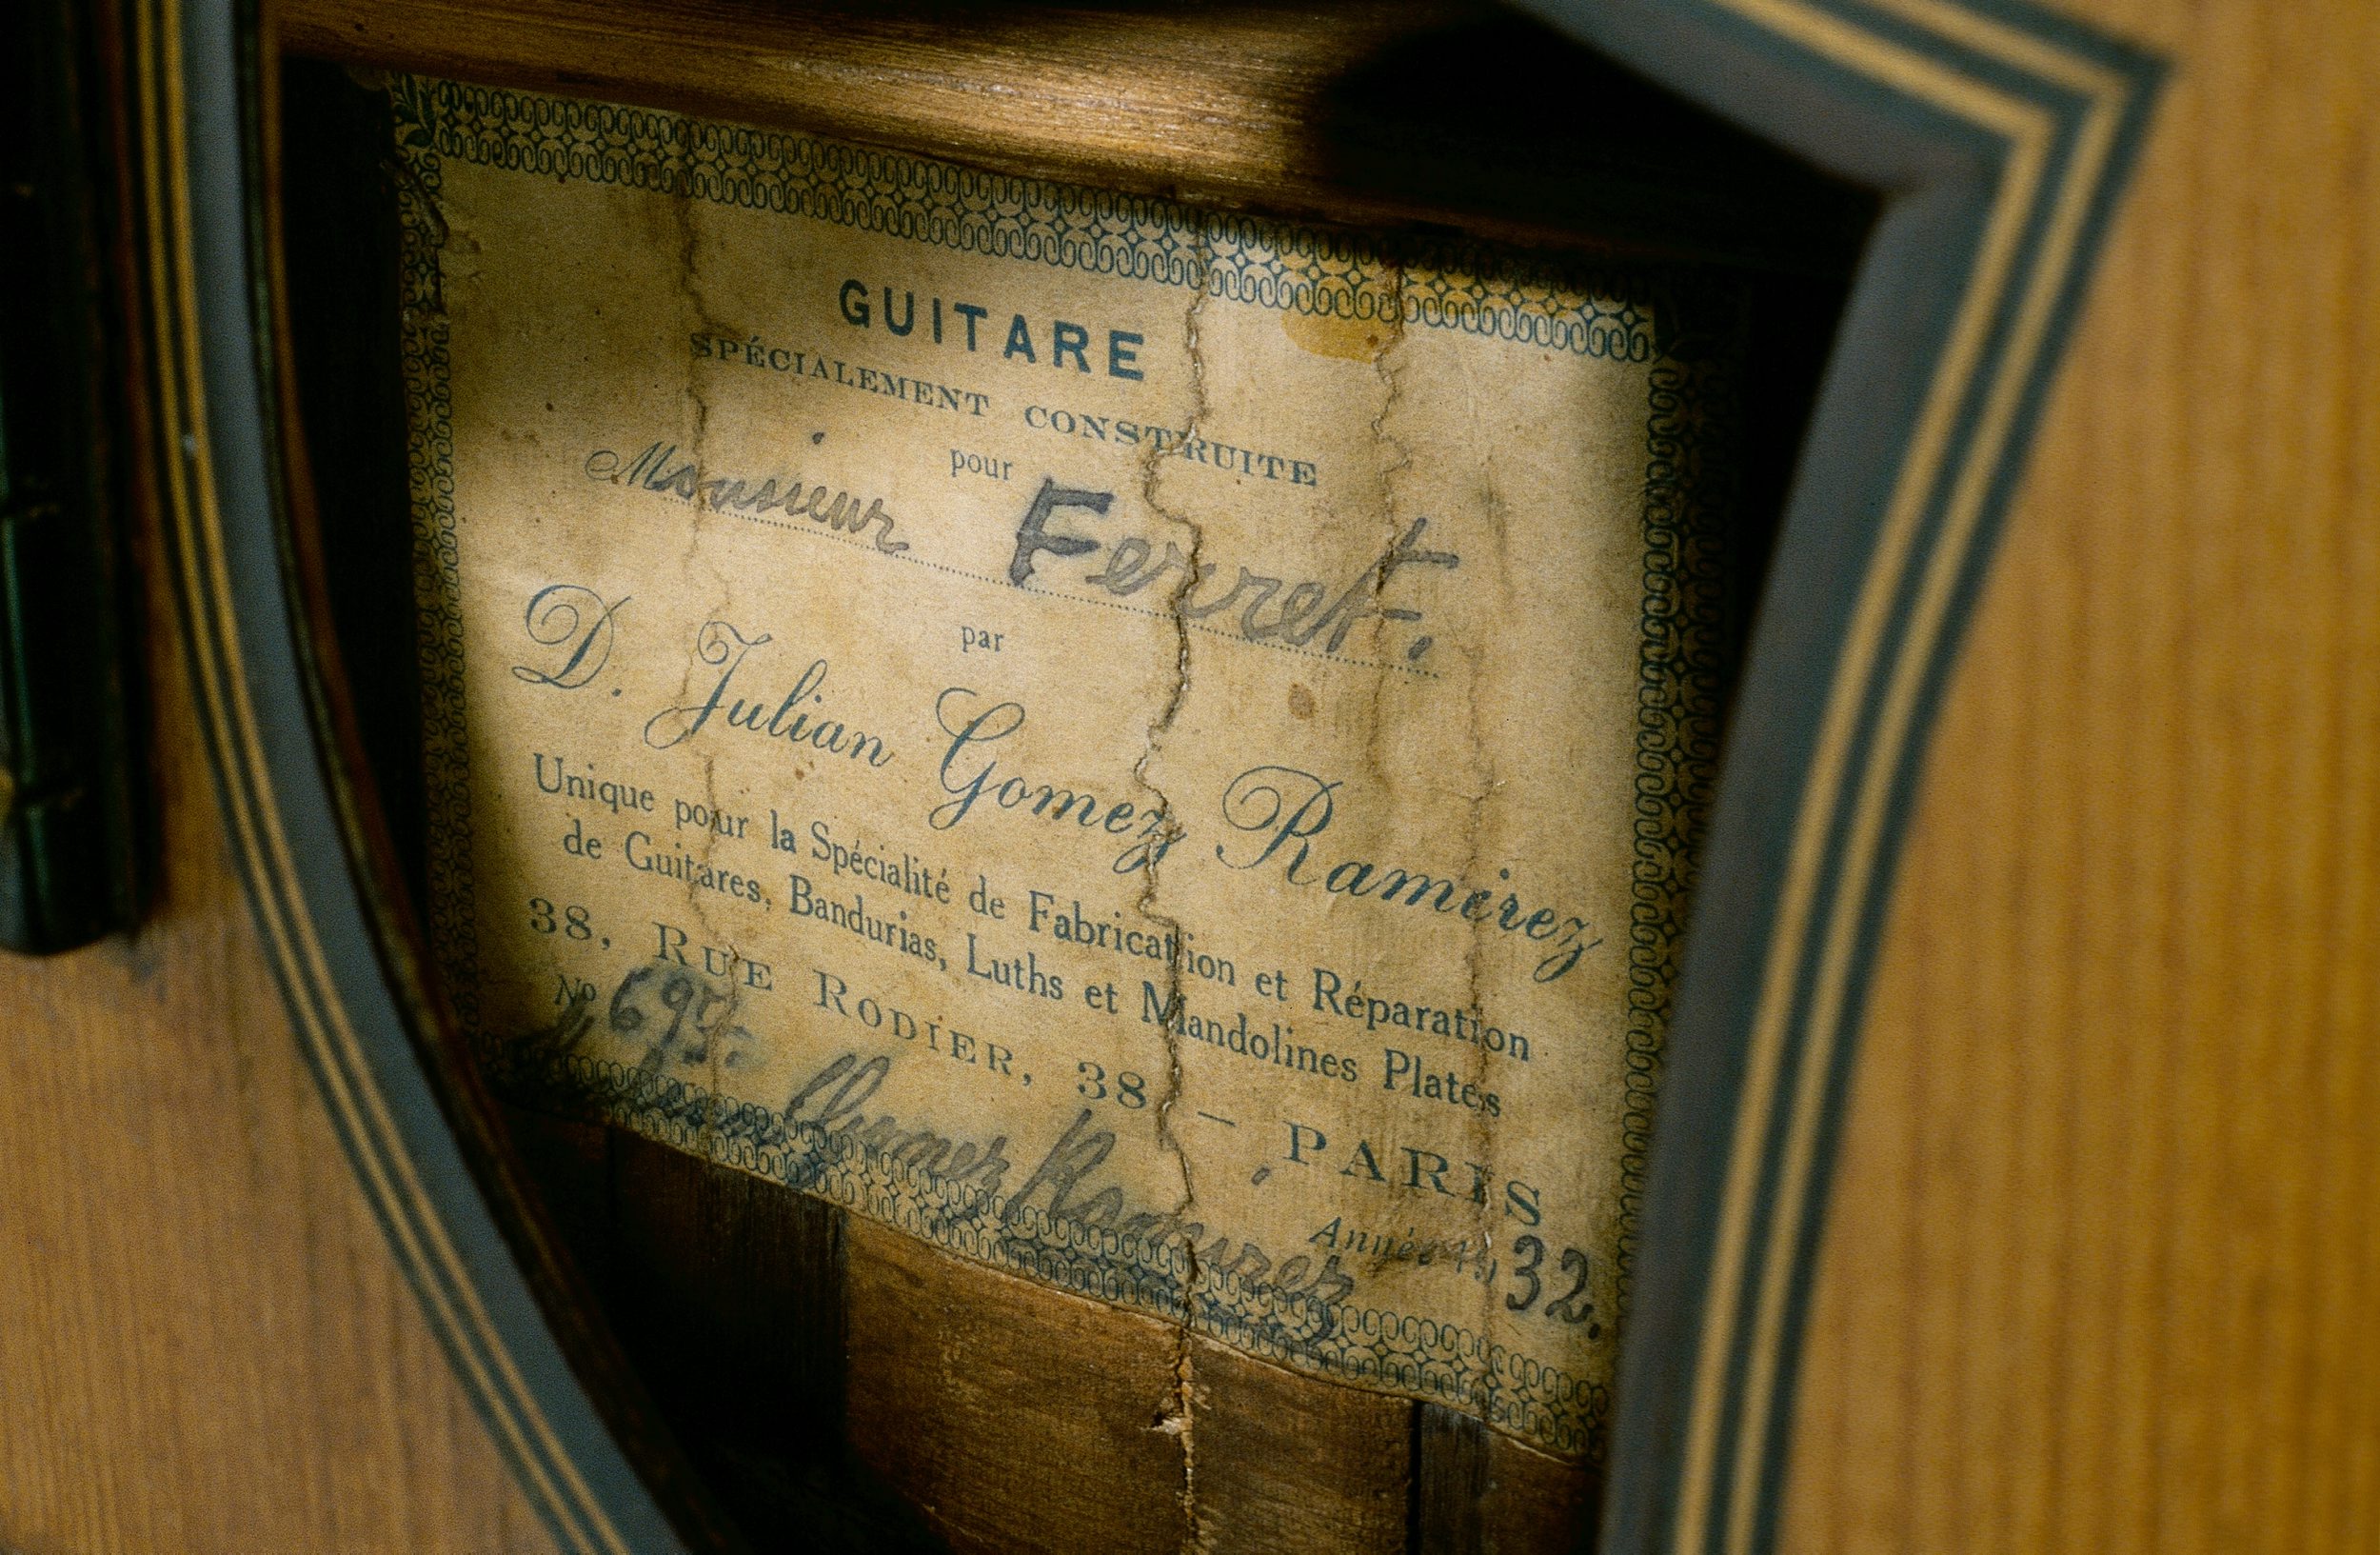 GUITARE
SPÉCIALEMENT CONSTRUITE
pour
Monsieur Ferret.
par
D. Julian Gomez Ramirez
Unique pour la Spécialité de Fabrication et Réparation
de Guitares, Bandurias, Luths et Mandolines Plates
38, RUE RODIER, 38 – PARIS
No 695.
Année 19 32.
Gomez Ramirez